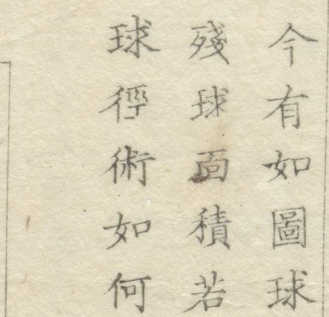 今有如圖球
殘球面積若
球徑術如何